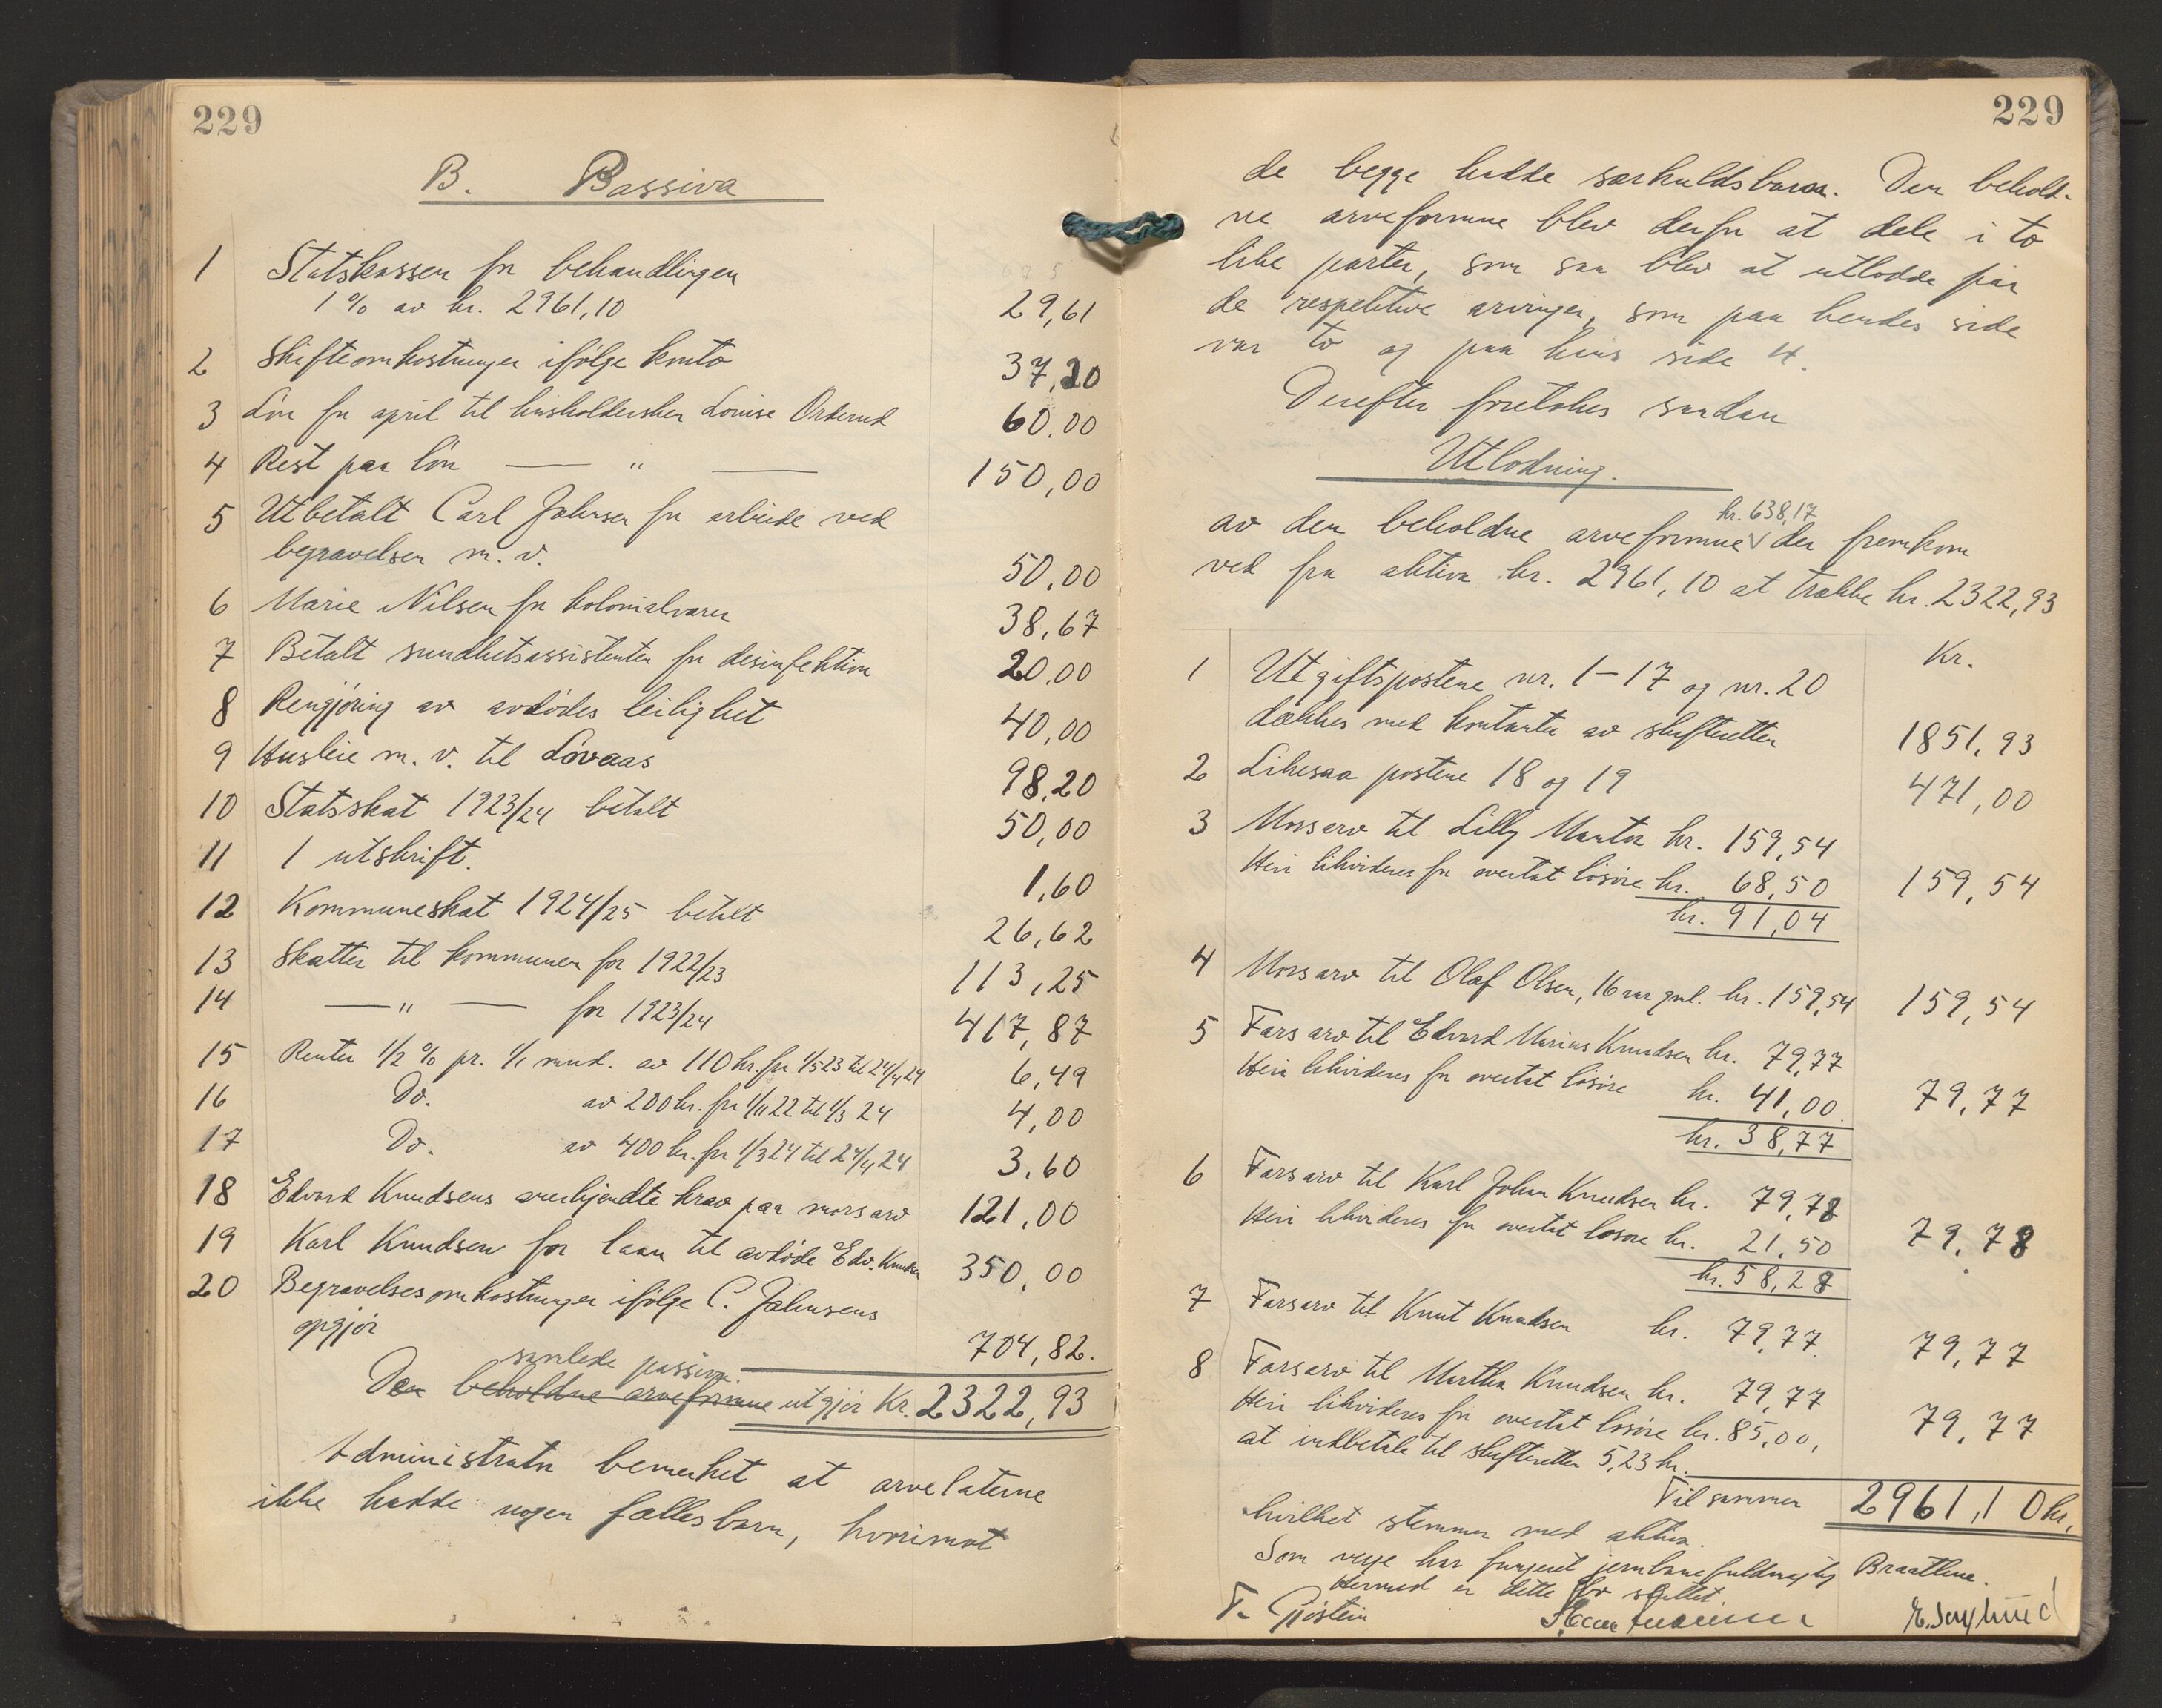 229
B. Passiva
1 Statskassen for behandlingen
1 % av kr. 2961,10 29,61
2 Skifteomkostninger ifølge konto 37,20
3 Løn for april til husholdersken Louise Orderud 60,00
4 Rest paa løn — " — 150,00
5 Utbetalt Carl Johnsen for arbeide ved
begravelsen m. v. 50,00
6 Marie Nilsen for kolonialvarer 38,67
7 Betalt sundhetsassistenten for desinfektion 20,00
8 Rengjøring av avdødes leilighet 40,00
9 Husleie m. v. til Løvaas 98,20
10 Statsskat 1923/24 betalt 50,00
11 1 utskrift. 1,60
12 Kommuneskat 1924/25 betalt 26,62
13 Skatter til kommunen for 1922/23 113,25
14 — " — for 1923/24 417,87
15 Renter 1/2 % pr. 1/1 mnd. av 110 kr. fra 1/5 23 til 24/4 24 6,49
16 Do. av 200 kr. fra 1/11 22 til 1/3 24 4,00
17 Do. av 400 kr. fra 1/3 24 til 24/4 24 3,60
18 Edvard Knudsens anerkjendte krav paa morsarv 121,00
19 Karl Knudsen for laan til avdøde Edv. Knudsen 350,00
20 Begravelsesomkostninger ifølge C. Johnsens
opgjør 704,82.
samlede passiva
Den beholdne arveformue utgjør Kr. 2322,93
Administrator bemerket at arvelaterne
ikke hadde nogen fællesbarn, hvorimot
229
de begge hadde særkuldsbarn. Den behold-
ne arveformue blev derfor at dele i to
like parter, som saa blev at utlodde paa
de respektive arvinger, som paa hendes side
var to og paa hans side 4.
Derefter foretokes saadan
Utlodning.
kr. 638,17
av den beholdne arveformue V der fremkom
ved fra aktiva kr. 2961,10 at trække kr. 2322,93
Kr.
1 Utgiftspostene nr. 1-17 og nr. 20
dækkes med kontanter av skifteretten 1851,93
2 Likesaa postene 18 og 19 471,00
3 Morsarv til Lilly Martha kr. 159,54
Heri likvideres for overtat løsøre kr. 68,50 159,54
kr. 91,04
4 Morsarv til Olaf Olsen, 16 aar gml. kr. 159,54 159,54
5 Farsarv til Edvard Marius Knudsen kr. 79,77
Heri likvideres for overtat løsøre kr. 41,00 79,77
kr. 38,77
6 Farsarv til Karl Johan Knudsen kr. 79,78
Heri likvideres for overtat løsøre kr. 21,50 79,78
kr. 58,28
7 Farsarv til Knut Knudsen kr. 79,77 79,77
8 Farsarv til Martha Knudsen kr. 79,77
Heri likvideres for overtat løsøre kr. 85,00, 79,77
at indbetale til skifteretten 5,23 kr.
Tilsammen 2961,10 kr.
hvilket stemmer med aktiva.
Som verge har fungert jernbanefuldmægtig Braathen.
Hermed er dette bo sluttet.
F. Gjøstein